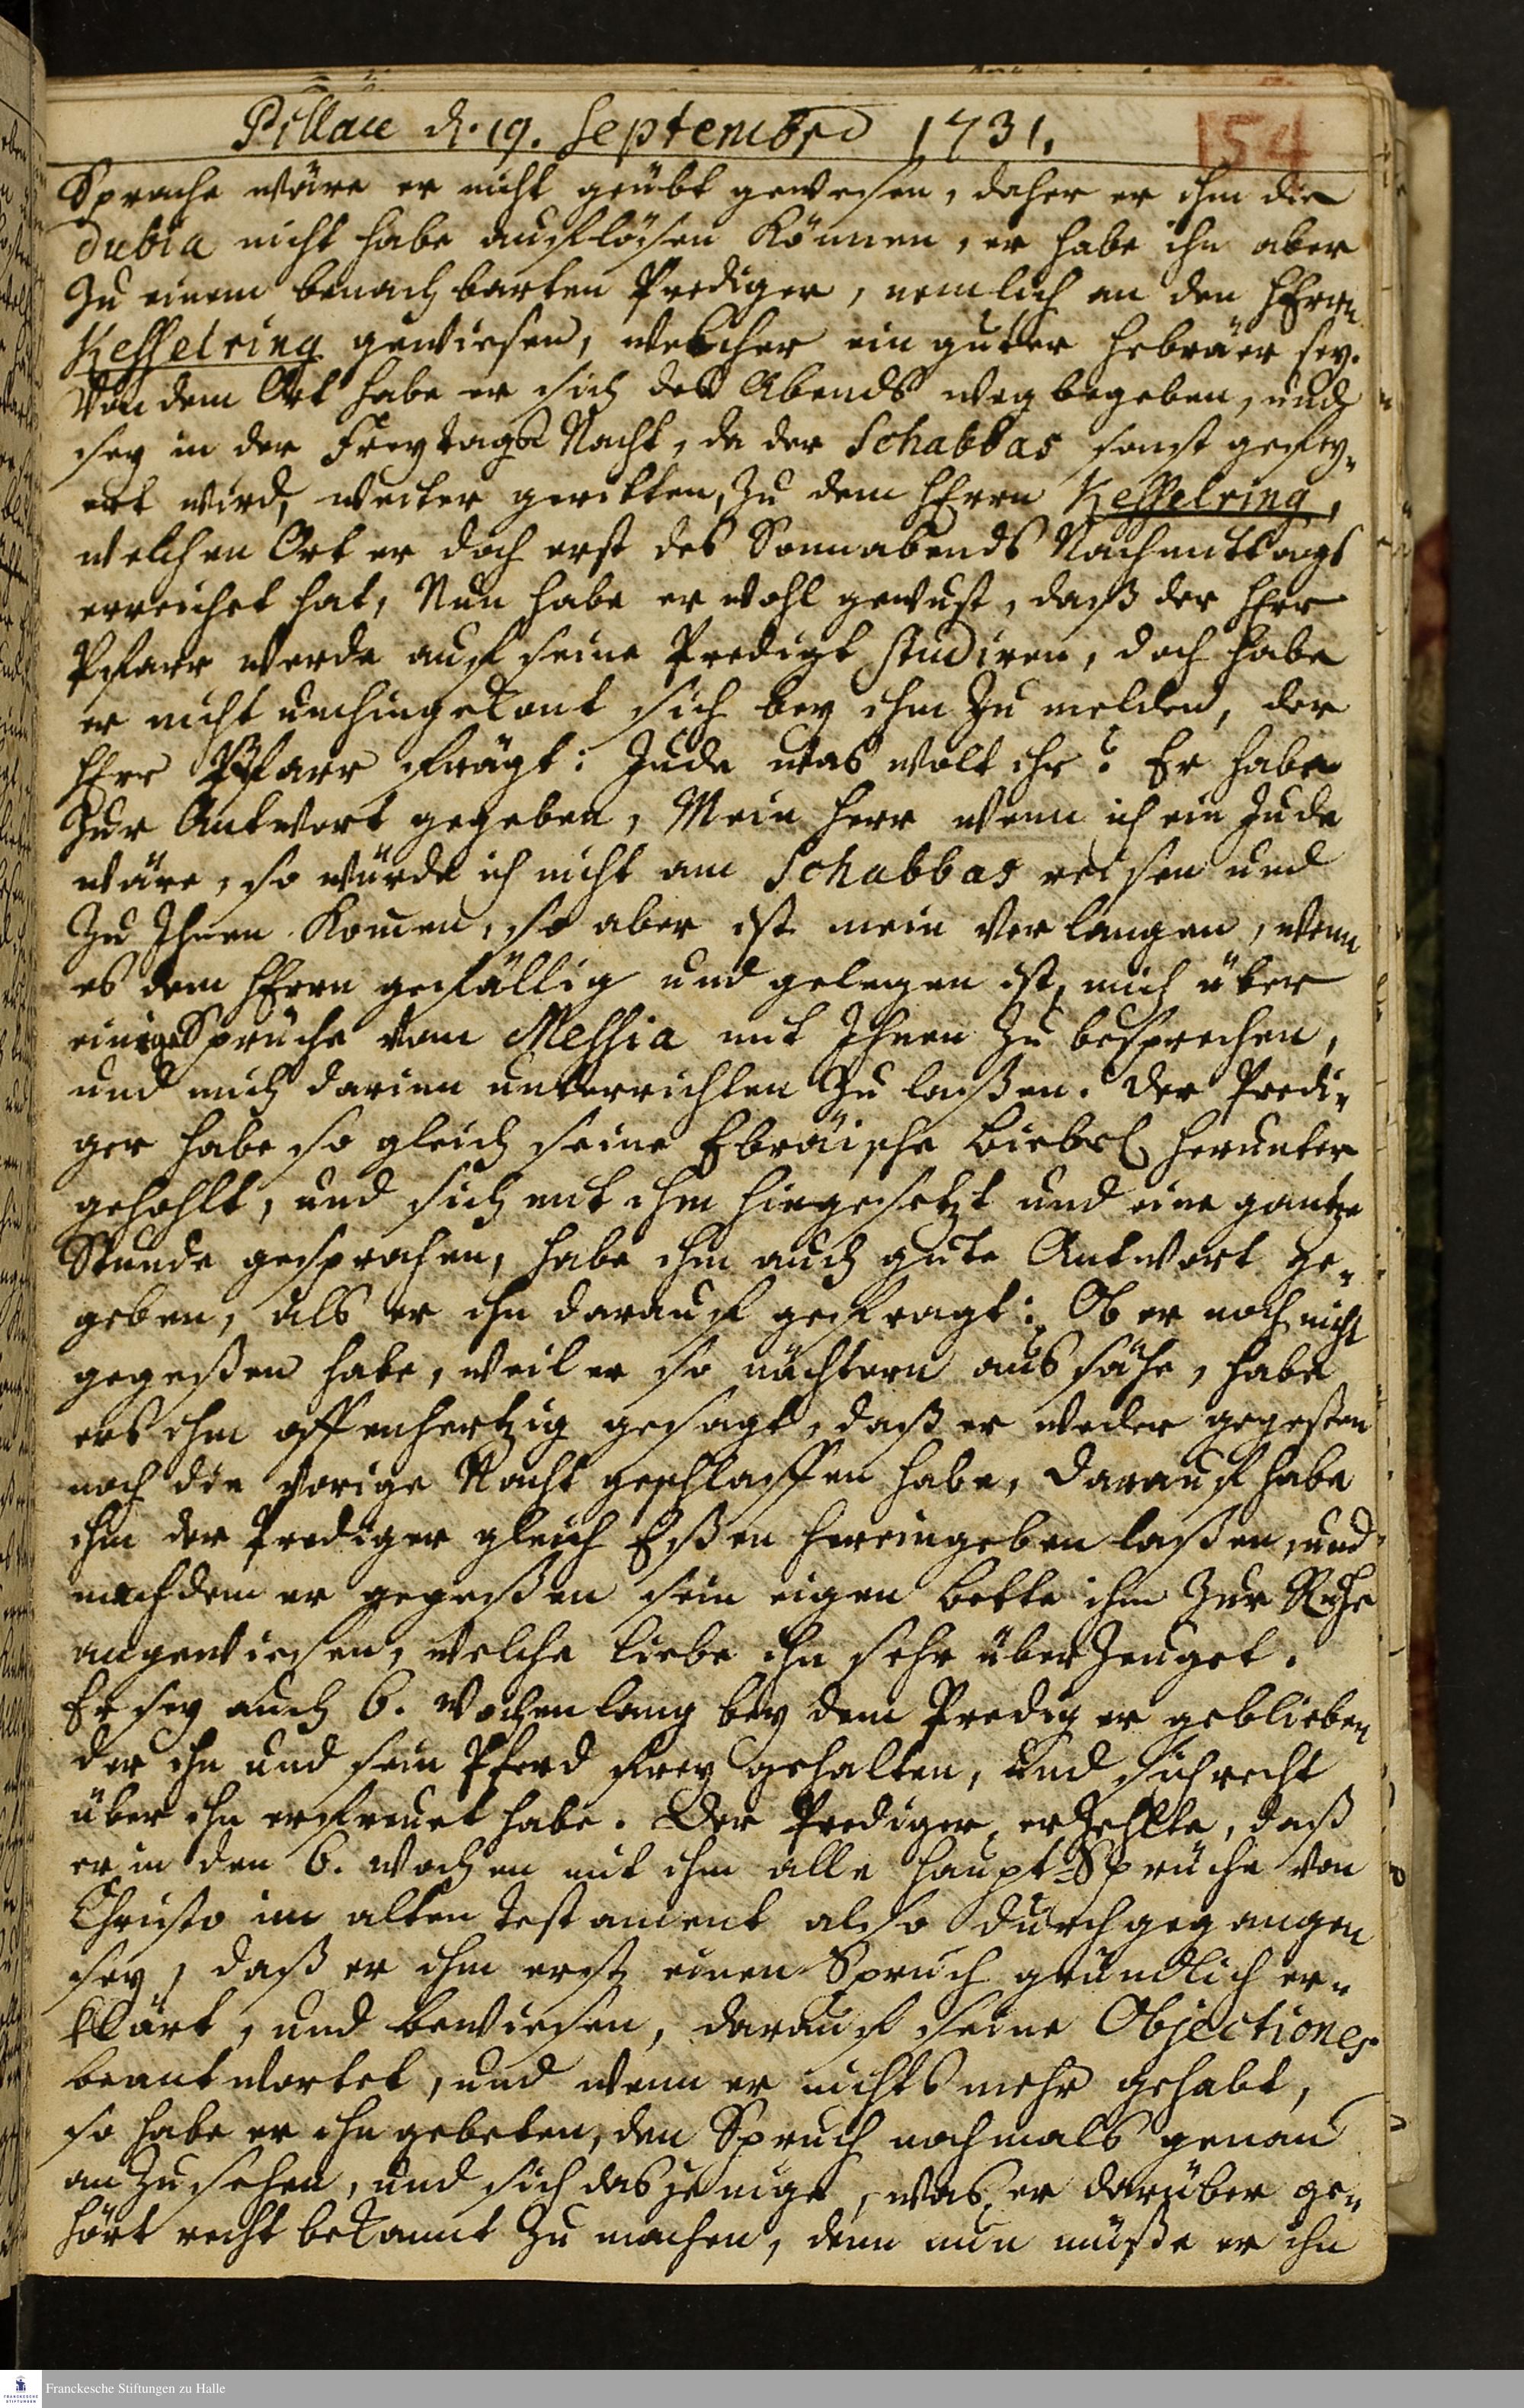 Pillau d. 19. Septembr 1731.
54
Sprache wäre er nicht geübt gewesen, daher er ihm die
dubia nicht habe auflösen können, er habe ihn aber
zu einem benachbarten Prediger, nemlich an den HErrn
Kesselring gewiesen, welcher ein guter Hebräer sey.
Von dem Ort habe er sich des Abends weg begeben, und
sey in der Freytags Nacht, da der Schabbas sonst gefey-
ert wird, weiter geritten, zu dem HErrn Kesselring,
welchen Ort er doch erst des Sonnabends Nachmittags
erreichet hat, Nun habe er wohl gewust, daß der HErr
Pfarr werde auf seine Predigt studiren, doch habe
er nicht umhingekont sich bey ihm zu melden, der
HErr Pfarr fragt: Jude was wolt ihr? Er habe
zur Antwort gegeben, Mein Herr wenn ich ein Jude
wäre, so würde ich nicht am Schabbas reisen und
zu Ihnen kom̄en, so aber ist mein Verlangen, wenn
es dem HErrn gefällig und gelegen ist, mich über
einige Sprüche vom Messia mit Ihnen zu besprechen,
und mich darinn unterrichten zu laßen. Der Predi-
ger habe so gleich seine Ebräische Biebel herunter
gehohlt, und sich mit ihm hingesetzt und eine gantze
Stunde gesprochen, habe ihm auch gute Antwort ge-
geben, als er ihn darauf gefragt: Ob er noch nicht
gegeßen habe, weil er so nüchtern aussähe, habe
ers ihm offenhertzig gesagt, daß er weder gegeßen
noch die vorige Nacht geschlaffen habe, darauf habe
ihm der Prediger gleich Eßen hereingeben laßen, und
nachdem er gegeßen sein eigen Bette ihm zur Ruhe
angewiesen, welche Liebe ihn sehr überzeuget.
Er sey auch 6. Wochen lang bey dem Prediger geblieben
der ihn und sein Pferd frey gehalten, und sich recht
über ihn erfreuet habe. Der Prediger erzehlte, daß
er in den 6. Wochen mit ihm alle Haupt Sprüche von
Christo im alten Testament also durchgegangen
sey, daß er ihm erst einen Spruch gründlich er-
klärt, und bewiesen, darauf seine Objectiones
beantwortet, und wenn er nichts mehr gehabt,
so habe er ihn gebeten, den Spruch nochmals genau
anzusehen, und sich dasjenige, was er darüber ge-
hört recht bekannt zu machen, denn nun müße er ihn
Franckesche Stiftungen zu Halle